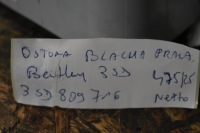 OSŁONA BLACHA PRAWA
Bentley 3SD 475/25
3SD 809 716 Netto